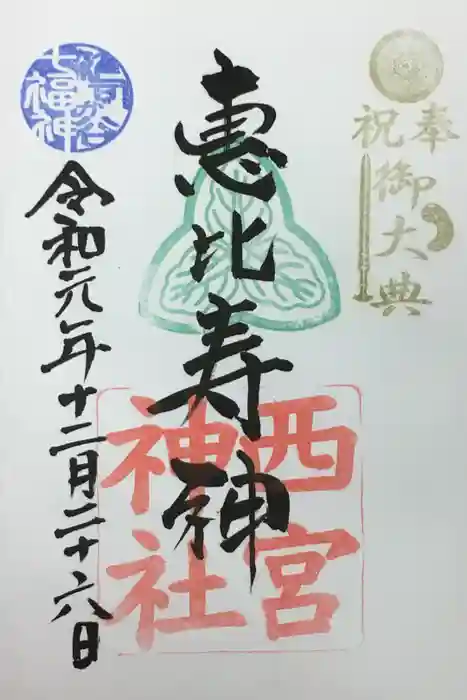 奉祝
御大典
惠比寿神
西宮
神社
令和元年十二月二十六日
七福神